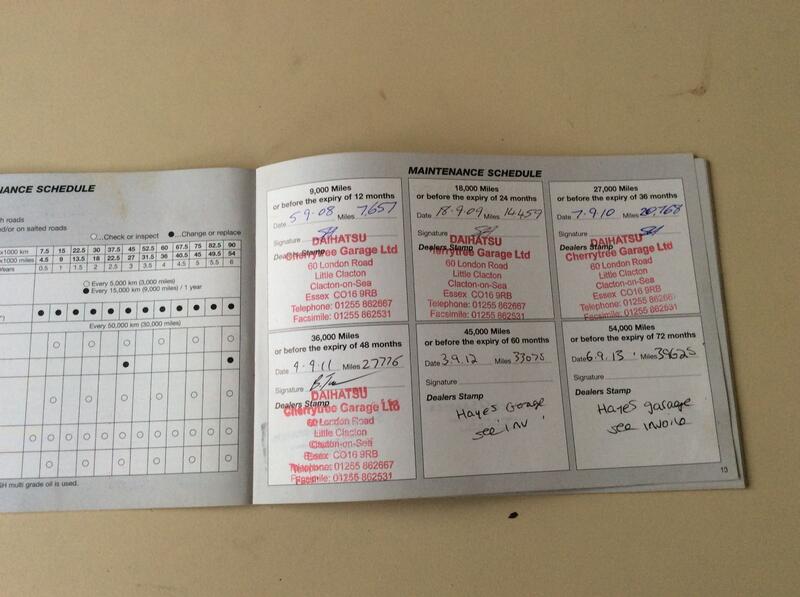 NANCE SCHEDULE
h roads
d/or on salted roads
○...Check or inspect ●...Change or replace
x1000 km 7.5 15 22.5 30 37.5 45 52.5 60 67.5 75 82.5 90
x1000 miles 4.5 9 13.5 18 22.5 27 31.5 36 40.5 45 49.5 54
Years 0.5 1 1.5 2 2.5 3 3.5 4 4.5 5 5.5 6
○ Every 5,000 km (3,000 miles)
● Every 15,000 km (9,000 miles) / 1 year
Every 50,000 km (30,000 miles)
SH multi grade oil is used.
MAINTENANCE SCHEDULE
9,000 Miles
or before the expiry of 12 months
Date 5 9 08 Miles 7,657
Signature
Dealers Stamp
DAIHATSU
Cherrytree Garage Ltd
60 London Road
Little Clacton
Clacton-on-Sea
Essex CO16 9RB
Telephone: 01255 862667
Facsimile: 01255 862531
18,000 Miles
or before the expiry of 24 months
Date 18.9.09 Miles 14459
Signature
Dealers Stamp
DAIHATSU
Cherrytree Garage Ltd
60 London Road
Little Clacton
Clacton-on-Sea
Essex CO16 9RB
Telephone: 01255 862667
Facsimile: 01255 862531
27,000 Miles
or before the expiry of 36 months
Date 7.9.10 Miles 20,768
Signature
Dealers Stamp
DAIHATSU
Cherrytree Garage Ltd
60 London Road
Little Clacton
Clacton-on-Sea
Essex CO16 9RB
Telephone: 01255 862667
Facsimile: 01255 862531
36,000 Miles
or before the expiry of 48 months
Date 9.9.11 Miles 27776
Signature
Dealers Stamp
DAIHATSU
Cherrytree Garage Ltd
60 London Road
Little Clacton
Clacton-on-Sea
Essex CO16 9RB
Telephone: 01255 862667
Facsimile: 01255 862531
45,000 Miles
or before the expiry of 60 months
Date 3.9.12 Miles 33075
Signature
Dealers Stamp
Hayes Garage
see inv
54,000 Miles
or before the expiry of 72 months
Date 6.9.13 Miles 39625
Signature
Dealers Stamp
Hayes garage
see invoice
13